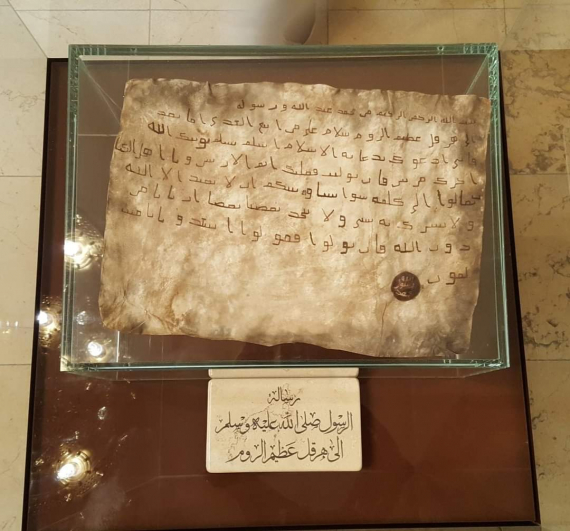 بسم الله الرحمن الرحيم من محمد عبد الله ورسوله
الى هرقل عظيم الروم سلام على من اتبع الهدى اما بعد
فانى ادعوك بدعايه الاسلام اسلم تسلم يوتك الله
اجرك مرتين فان توليت فعليك اثم الاريسين ويا اهل
تعالوا الى كلمه سوا بيننا وبينكم ان لا نعبد الا الله
ولا نشرك به شي ولا يتخذ بعضنا بعضا اربابا من
دون الله فان تولوا فقولوا اشهدوا بانا مس
لمون
رسالة
الرسول صلى الله عليه وسلم
الى هرقل عظيم الروم